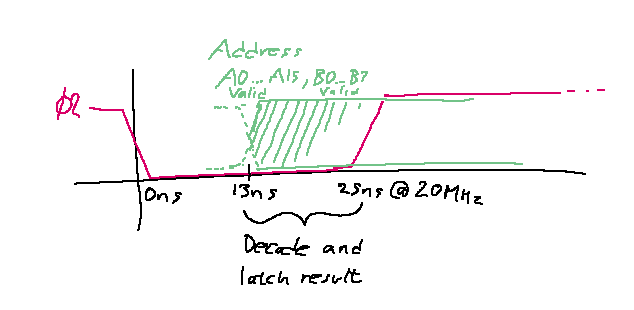 Address
A0...A15, B0..B7
Valid Valid
Φ2
0ns 13ns 25ns @ 20MHz
Decode and
latch result